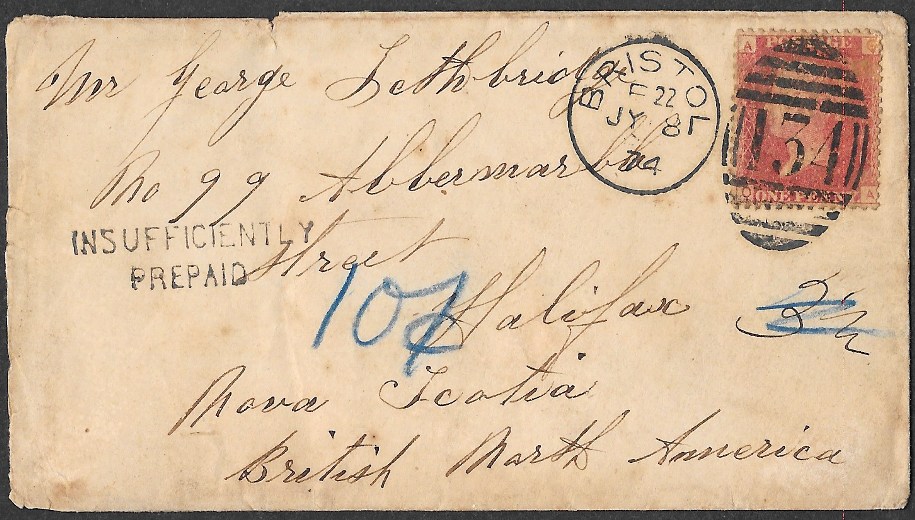 Mr George Lethbridge
No 99 Abbermarle
Street
Halifax
Nova Scotia
British North America
INSUFFICIENTLY
PREPAID
10¢
3½
BRISTOL
F 22
JY 8
74
134
A POSTAGE G
ONE PENNY A